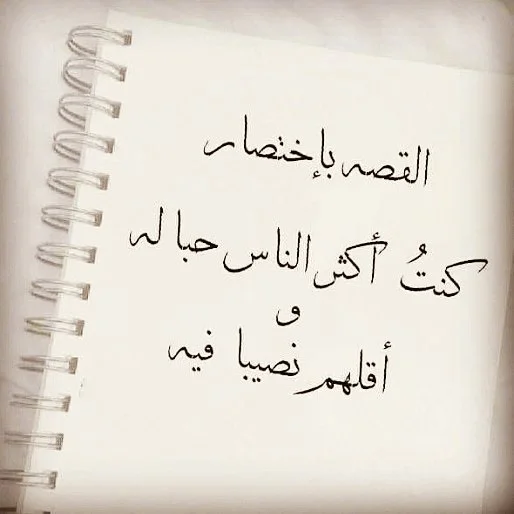 القصه بإختصار
كنتُ أكثر الناس حبا له
و
أقلهم نصيبا فيه